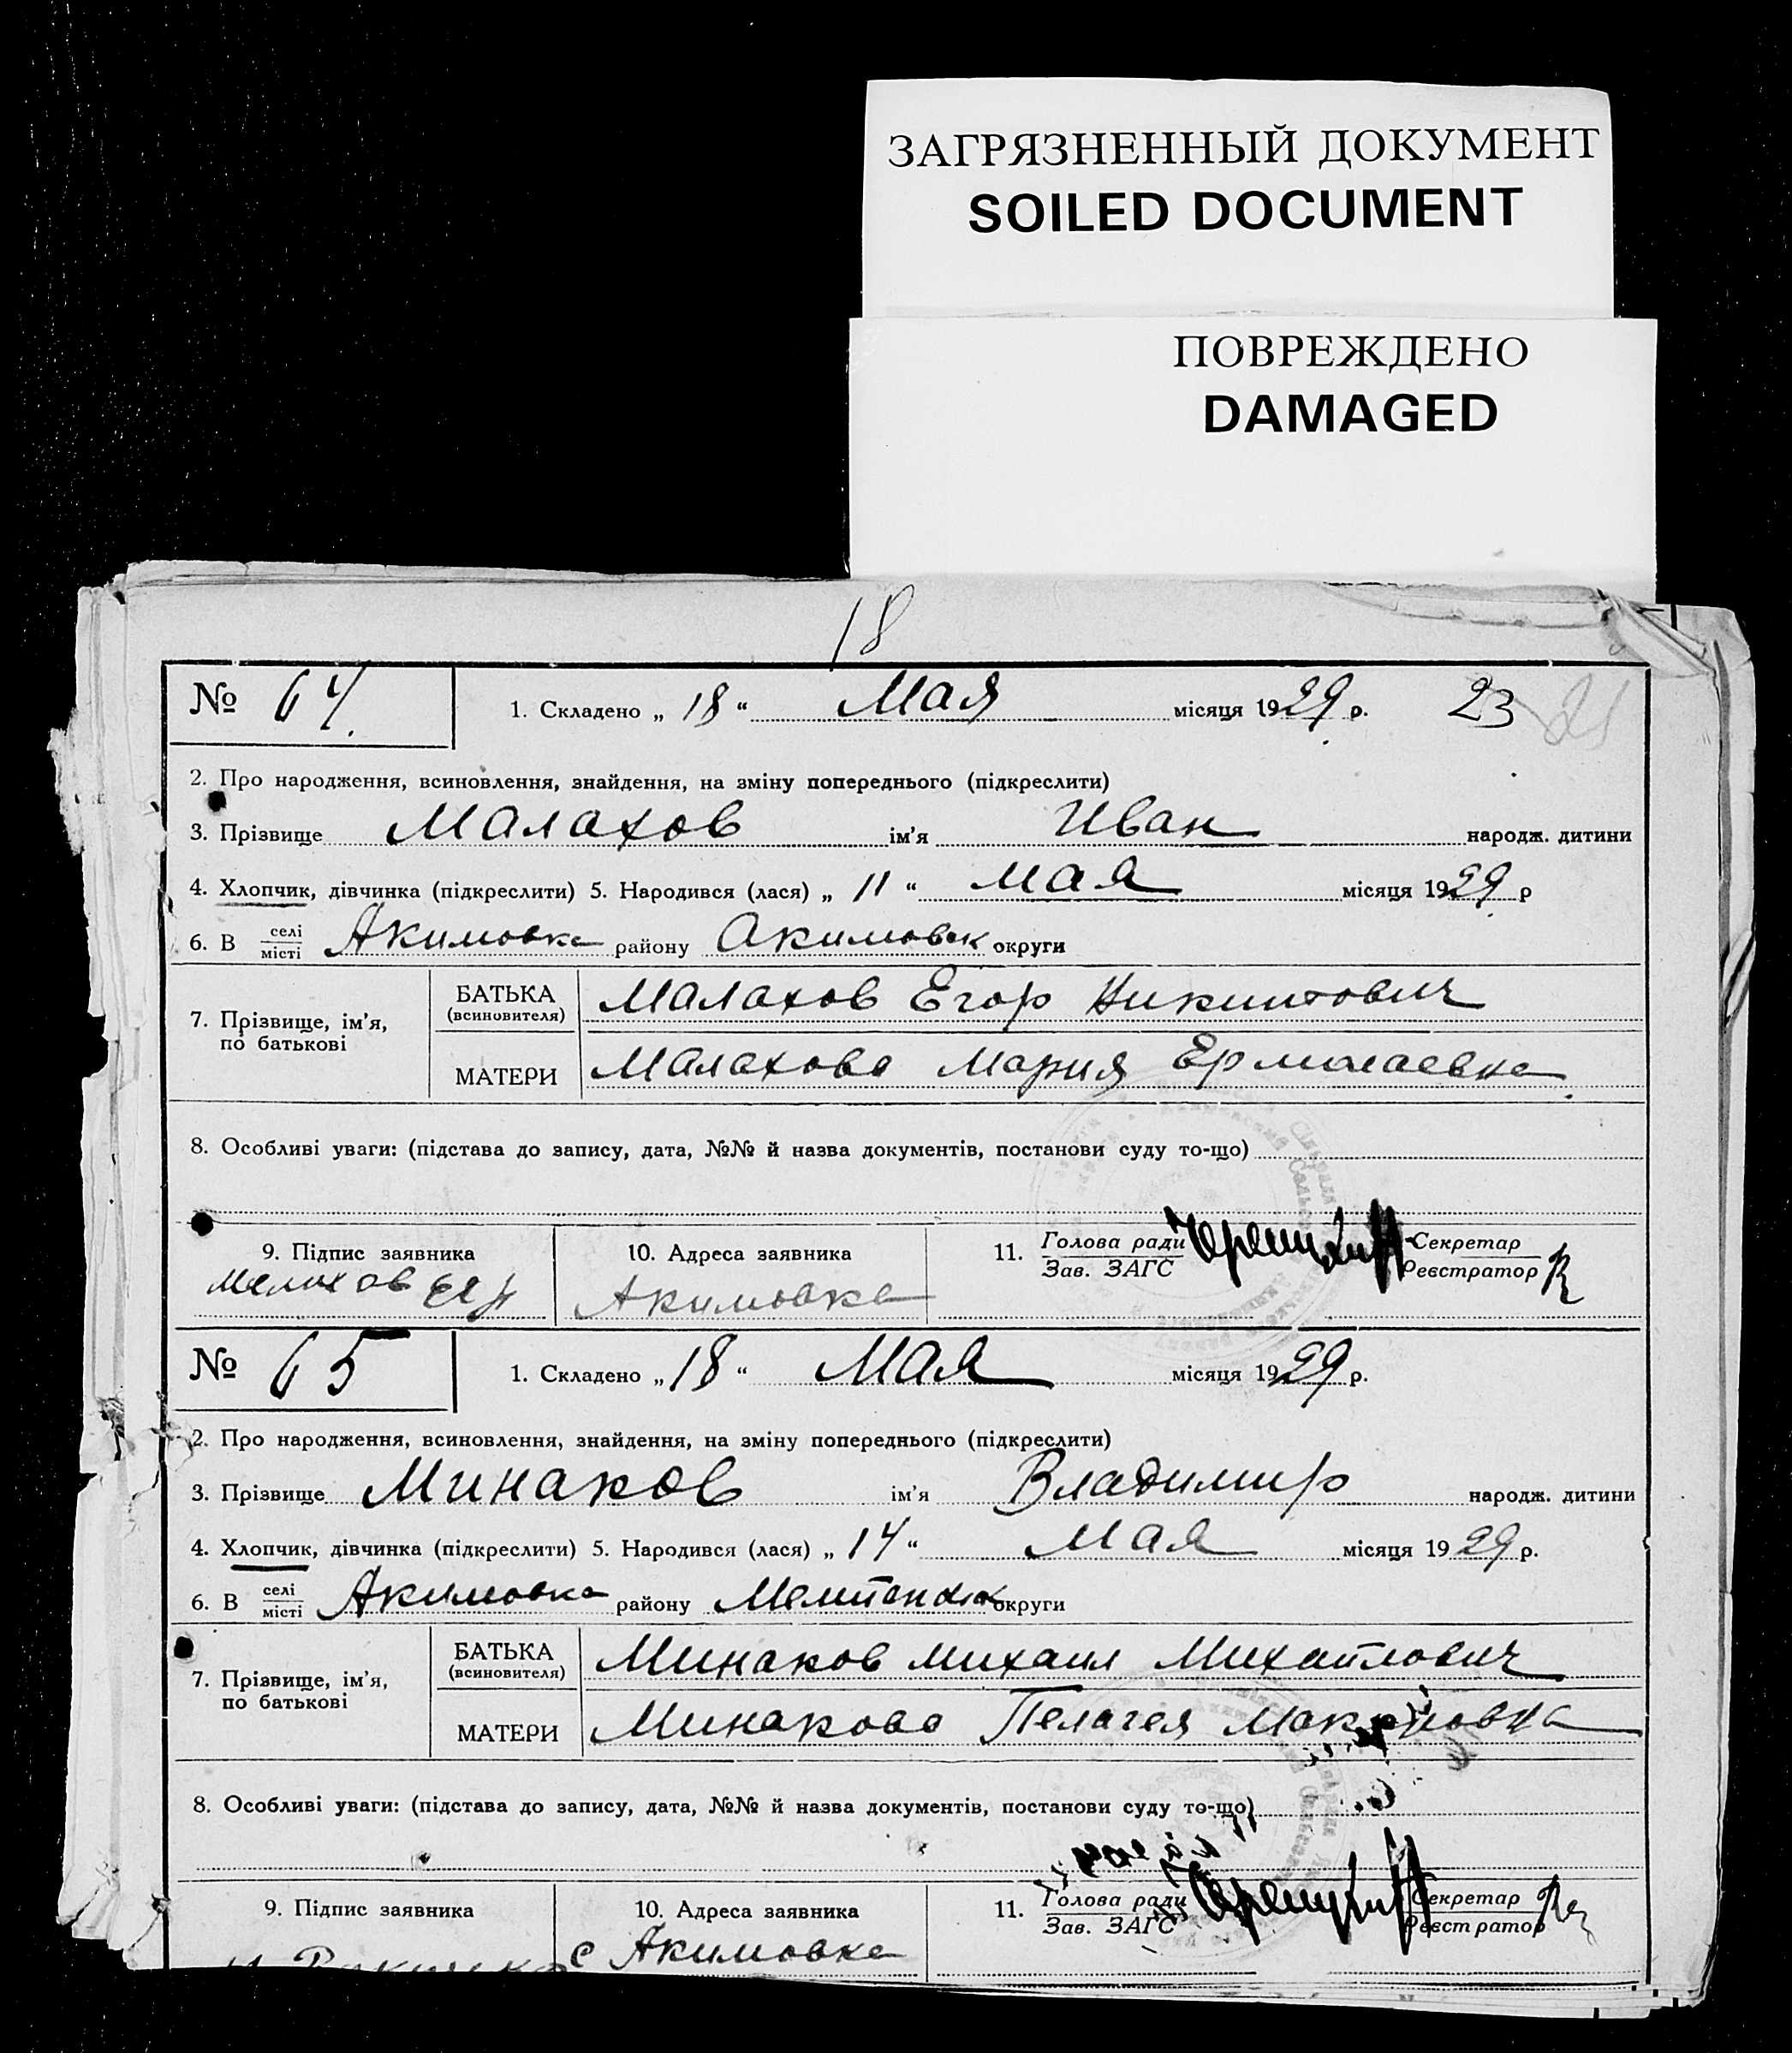 ЗАГРЯЗНЕННЫЙ ДОКУМЕНТ
SOILED DOCUMENT
ПОВРЕЖДЕНО
DAMAGED
18
№ 64. 1. Складено „ 18 “ Мая місяця 1929 р. 23 21
2. Про народження, всиновлення, знайдення, на зміну попереднього (підкреслити)
3. Прізвище Малахов ім’я Иван народж. дитини
4. Хлопчик, дівчинка (підкреслити) 5. Народився (лася) „ 11 “ мая місяця 1929 р
6. В селі місті Акимовка району Акимовск округи
7. Прізвище, ім’я, по батькові
БАТЬКА (всиновителя) Малахов Егор Никитович
МАТЕРИ Малахова Мария Ермолаевна
8. Особливі уваги: (підстава до запису, дата, №№ й назва документів, постанови суду то-що)
9. Підпис заявника 10. Адреса заявника 11. Голова ради Зав. ЗАГС Секретар Реєстратор
Малахов Акимовка
№ 65 1. Складено „ 18 “ Мая місяця 1929 р.
2. Про народження, всиновлення, знайдення, на зміну попереднього (підкреслити)
3. Прізвище Минаков ім’я Владимир народж. дитини
4. Хлопчик, дівчинка (підкреслити) 5. Народився (лася) „ 14 “ Мая місяця 1929 р.
6. В селі місті Акимовка району округи
7. Прізвище, ім’я, по батькові
БАТЬКА (всиновителя) Минаков Михаил Михайлович
МАТЕРИ Минакова Пелагея
8. Особливі уваги: (підстава до запису, дата, №№ й назва документів, постанови суду то-що)
9. Підпис заявника 10. Адреса заявника 11. Голова ради Зав. ЗАГС Секретар Реєстратор
с Акимовка